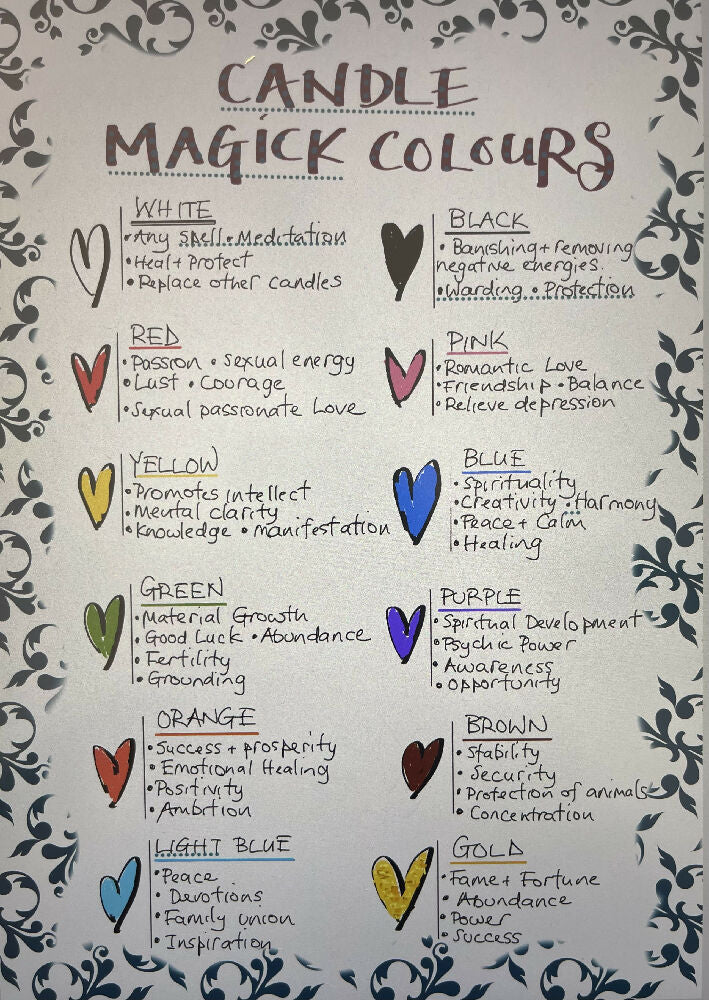 CANDLE
MAGICK COLOURS
WHITE
• Any Spell • Meditation
• Heal + Protect
• Replace other candles
BLACK
• Banishing + removing
negative energies.
• Warding • Protection
RED
• Passion • Sexual energy
• Lust • Courage
• Sexual passionate Love
PINK
• Romantic Love
• Friendship • Balance
• Relieve depression
YELLOW
• Promotes intellect
• Mental clarity
• Knowledge • manifestation
BLUE
• Spirituality
• Creativity • Harmony
• Peace + Calm
• Healing
GREEN
• Material Growth
• Good Luck • Abundance
• Fertility
• Grounding
PURPLE
• Spiritual Development
• Psychic Power
• Awareness
• Opportunity
ORANGE
• Success + prosperity
• Emotional Healing
• Positivity
• Ambition
BROWN
• Stability
• Security
• Protection of animals
• Concentration
LIGHT BLUE
• Peace
• Devotions
• Family union
• Inspiration
GOLD
• Fame + Fortune
• Abundance
• Power
• Success